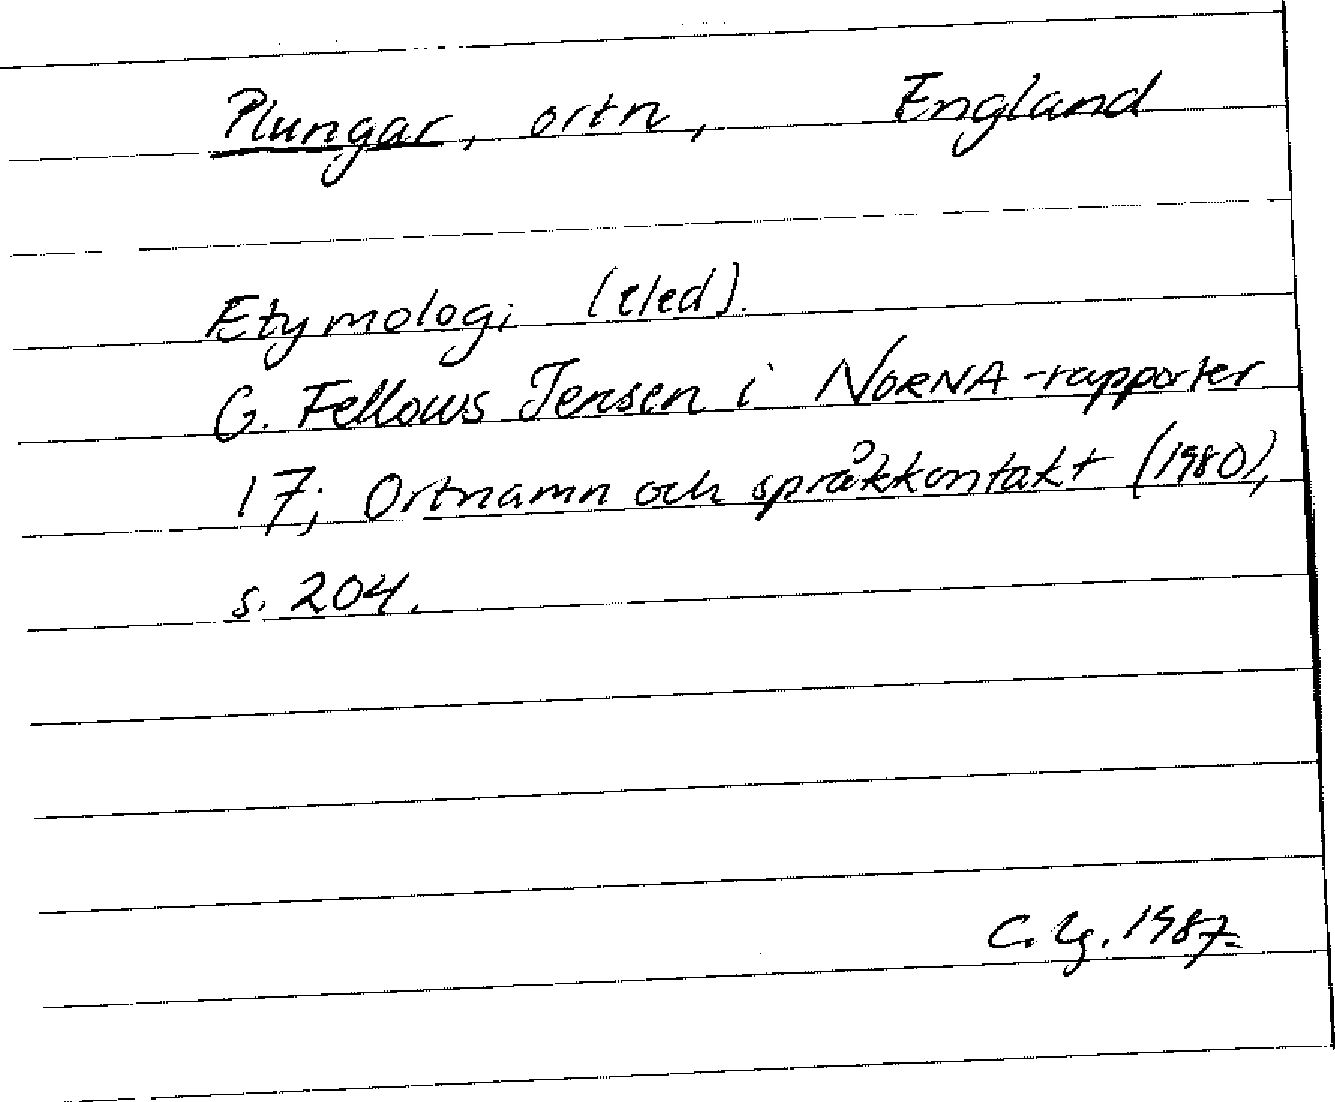 Plungar, ortn, England
Etymologi (eled).
G. Fellows Jensen i NORNA-rapporter
17; Ortnamn och språkkontakt (1980),
s. 204.
C. Lg. 1987.